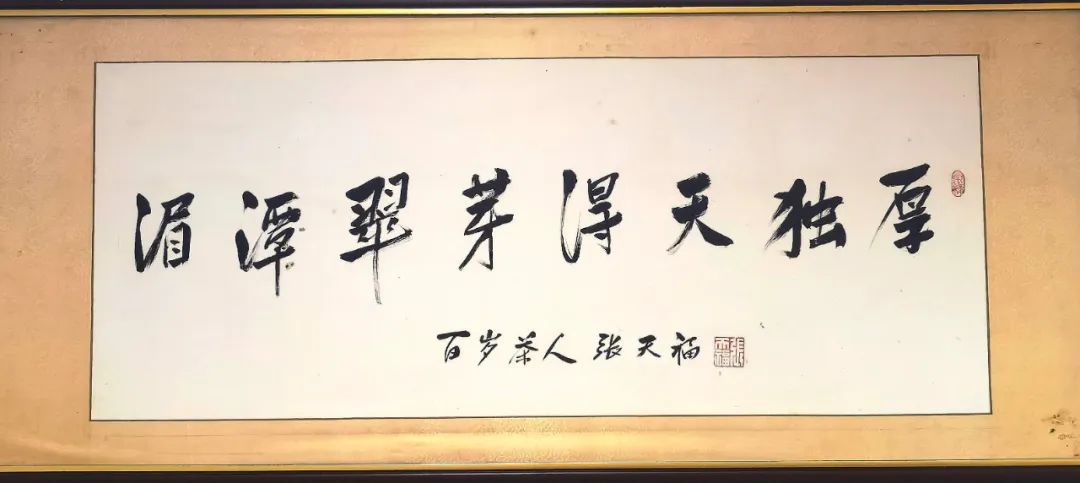 湄潭翠芽得天独厚
百岁茶人张天福
張天福